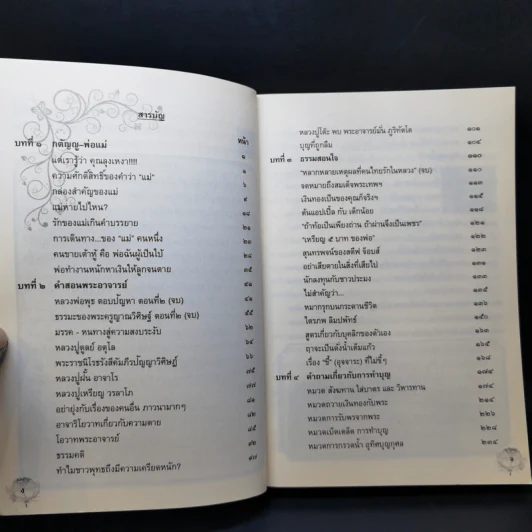 สารบัญ
หน้า
บทที่ ๑ กตัญญู-พ่อแม่ ๑
แต่เรารู้ว่า คุณลุงเหงา!!!!
ความศักดิ์สิทธิ์ของคำว่า "แม่"
กล่องสำคัญของแม่
แม่หายไปไหน?
รักของแม่เกินคำบรรยาย
การเดินทาง...ของ "แม่" คนหนึ่ง
คนขายเต้าหู้ คือ พ่อฉันผู้เป็นใบ้
พ่อทำงานหนักหาเงินให้ลูกจนตาย
บทที่ ๒ คำสอนพระอาจารย์ ๔๑
หลวงพ่อพุธ ตอบปัญหา ตอนที่๒ (จบ) ๔๑
ธรรมะของพระครูญาณวิศิษฏ์ ตอนที่๒ (จบ) ๕๕
มรรค - หนทางสู่ความสงบระงับ ๖๒
หลวงปู่ดูลย์ อตุโล ๖๔
พระราชนิโรธรังสีคัมภีรปัญญาวิศิษฏ์ ๖๙
หลวงปู่ฝั้น อาจาโร ๗๕
หลวงปู่เหรียญ วรลาโภ ๗๗
อย่ายุ่งกับเรื่องของคนอื่น ภาวนามากๆ
อาจาริโยวาทเกี่ยวกับความตาย ๘๔
โอวาทพระอาจารย์ ๘๕
ธรรมคติ ๙๒
ทำไมชาวพุทธถึงมีความเครียดหนัก? ๙๗
หลวงปู่โต๊ะ พบ พระอาจารย์มั่น ภูริทัตโต ๑๐๑
บุญที่ถูกลืม ๑๐๔
บทที่ ๓ ธรรมสอนใจ ๑๑๐
"หลากหลายเหตุผลที่คนไทยรักในหลวง" (จบ) ๑๑๐
จดหมายถึงสมเด็จพระเทพฯ ๑๑๓
เงินทองเป็นของคุณก็จริงๆ
ต้นแอปเปิ้ล กับ เด็กน้อย
"ถ้าท้อเป็นเพียงถ่าน ถ้าผ่านจึงเป็นเพชร"
"เหรียญ ๕ บาท ของพ่อ"
สุนทรพจน์ของสตีฟ จ็อบส์
อย่าเสียดายในสิ่งที่เสียไป
นักลงทุนกับชาวประมง
ไม่สำคัญว่า...
หมากรุกบนกระดานชีวิต
ไตรภพ ลิมปพัทธ์
สูตรเกี่ยวกับบุคลิกของตัวเอง ๑๖๓
ฤาจะเป็นดั่งน้ำเต็มแก้ว ๑๖๕
เรื่อง "ขี้" (อุจจาระ) ที่ไม่ขี้ๆ ๑๖๘
บทที่ ๔ คำถามเกี่ยวกับการทำบุญ ๑๗๔
หมวด สังฆทาน ใส่บาตร และ วิหารทาน ๑๗๔
หมวดถวายเงินทองกับพระ ๒๑๔
หมวดการรับพรจากพระ ๒๒๖
หมวดเบ็ดเตล็ด การทำบุญ ๒๒๘
หมวดการกรวดน้ำ อุทิศบุญกุศล ๒๓๔